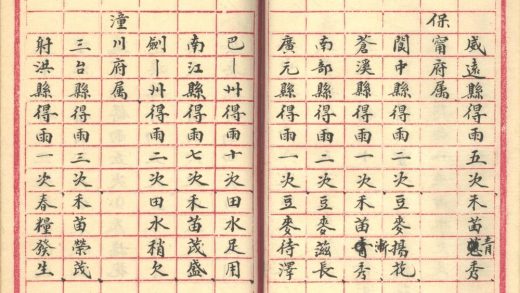 威遠縣得雨五次禾苗青秀
保寧府属
閬中縣得雨二次豆麥揚花
蒼溪縣得雨一次禾苗漸秀
南部縣得雨二次豆麥滋長
廣元縣得雨一次豆麥待澤
巴州得雨十次田水足用
南江縣得雨七次禾苗茂盛
劍州得雨二次田水稍欠
潼川府属
三台縣得雨三次禾苗榮茂
射洪縣得雨一次春糧發生